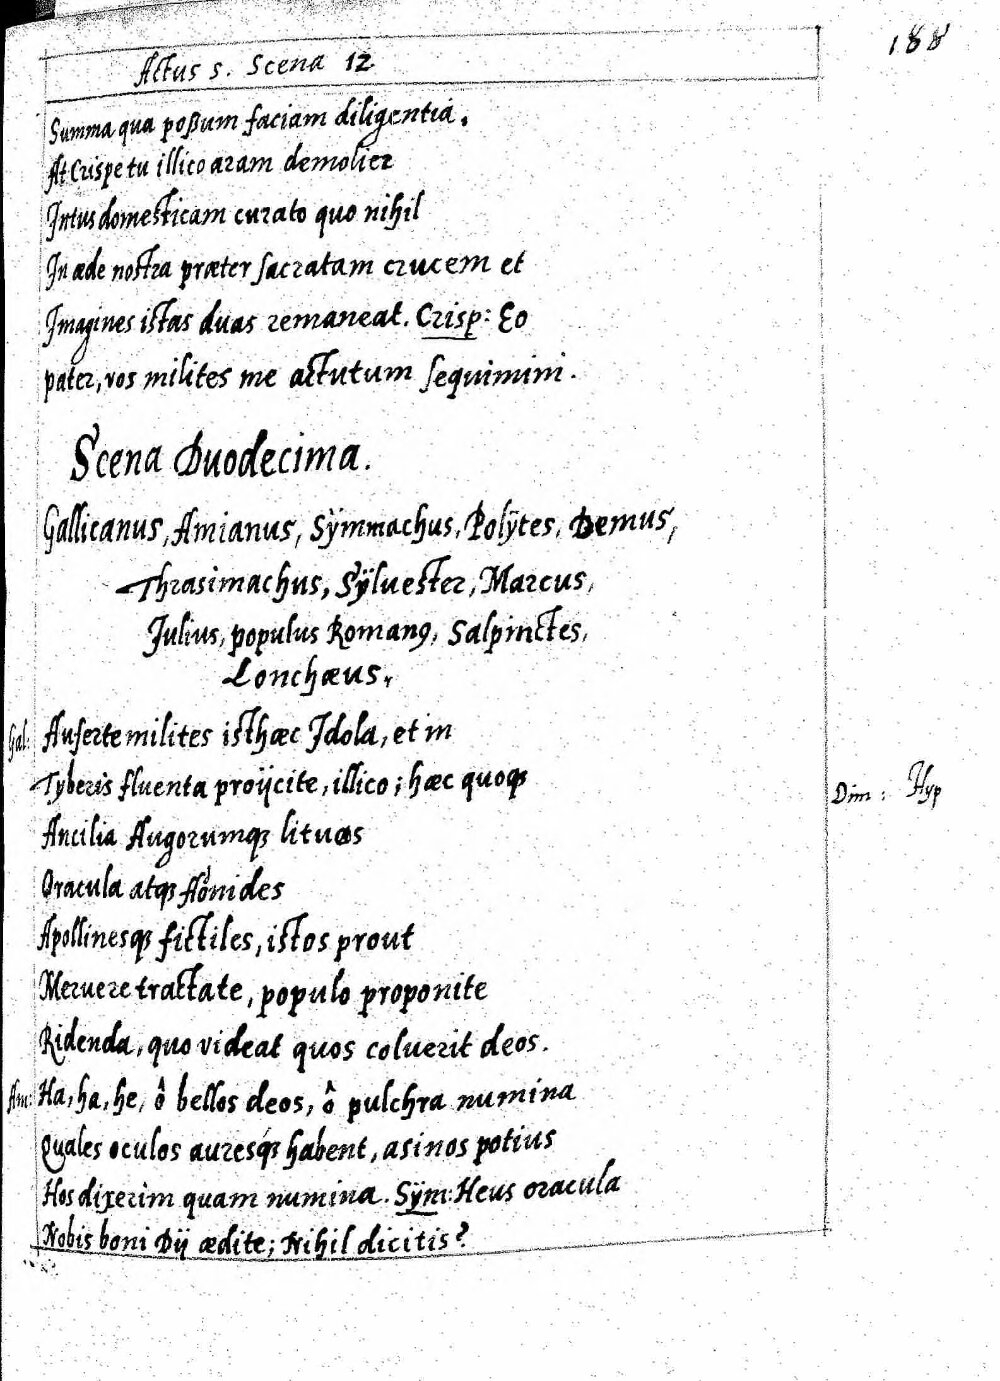 188
Actus 5. Scena 12
Summa qua poßum faciam diligentiâ.
At Crispe tu illico aram demolier
Intus domesticam curato quo nihil
In æde nostra præter sacratam crucem et
Imagines istas duas remaneat. Crisp: Eo
pater, vos milites me actutum sequimini.
Scena Duodecima.
Gallicanus, Amianus, Sÿmmachus, Polÿtes, Demus,
Thrasimachus, Sÿluester, Marcus,
Julius, populus Romanꝯ, Salpinctes,
Lonchæus.
Gal: Auferte milites isthæc Idola, et in
Tyberis fluenta proijcite, illico; hæc quoqꝫ
Dim: Hyp
Ancilia Augorumqꝫ lituos
Oracula atqꝫ Aönides
Apollinesqꝫ fictiles, istos prout
Meruere tractate, populo proponite
Ridenda, quo videat quos coluerit deos.
Am: Ha, ha, he, ô bellos deos, ô pulchra numina
Quales oculos auresqꝫ habent, asinos potius
Hos dixerim quam numina. Sÿm: Heus oracula
Nobis boni Dij ædite; Nihil dicitis?